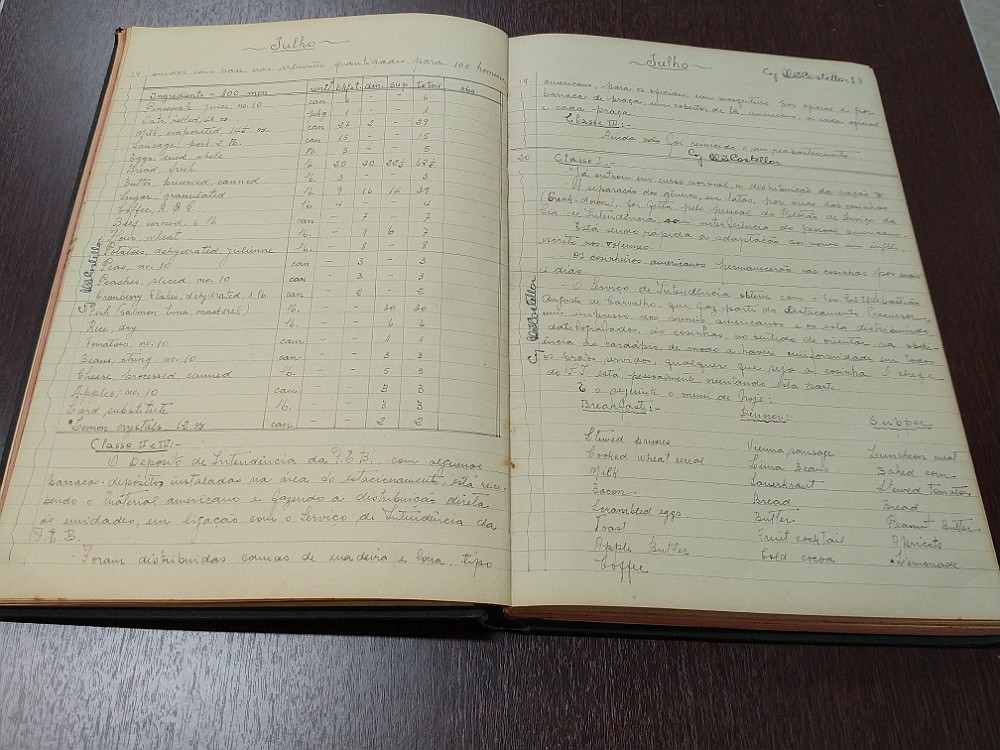 ~ Julho ~
19 com base nas seguintes quantidades para 100 homens
Ingredients - 100 men unit bkfst. din. sup. total obs.
Pineapple juice, no. 10 can 6 - - 6
rolled, pkg 1 - - 1
Milk, evaporated, 14½ oz. can 27 2 - 29
Sausage, pork, 2 lb. can 15 - - 15
Eggs, dried, whole lb. 5 - - 5
Bread, fresh lb. 20 20 22½ 62½
Butter, preserved, canned lb. 3 - - 3
Sugar, granulated lb. 9 16 14 39
Coffee, R. & G. lb. 4 - - 4
Beef, corned, 6 lb can - 7 - 7
Flour, wheat lb. - 1 6 7
Potatoes, dehydrated, julienne lb. - 8 - 8
Peas, no. 10 can - 3 - 3
Peaches, sliced, no. 10 can - 3 - 3
Cranberry flakes, dehydrated, 1 lb. can - 2 - 2
Fish (salmon, tuna, mackerel) lb. - - 30 30
Rice, dry lb. - - 6 6
Tomatoes, no. 10 can - -
Beans, string, no. 10 can - - 3 3
Cheese, processed, canned lb. - - 5 5
Apples, no. 10 can - - 3 3
Lard substitute lb. - - 3 3
Lemon crystals, 12 oz can - - 2 2
Classe II e IV:-
O Deposito de Intendência da F.E.B., com algumas
barraca-depósitos instaladas na área do estacionamento, está rece-
bendo o material americano e fazendo a distribuição direta
ás unidades, em ligação com o Serviço de Intendência da
F.E.B.
- Foram distribuidas camas de madeira e lona, tipo
~ Julho ~
19 americano, para os oficiais, um mosquiteiro por oficial e por
barraca de praça, um cobertor de lã, americano, a cada oficial
e cada praça.
Classe III:-
Ainda não foi iniciado o seu reabastecimento.
20 Classe I:-
Já entrou em curso normal, a distribuição da ração B.
A separação dos gêneros, em latão, por áreas das cozinhas
(break-down), foi feita pelo pessoal do Pelotão de Serviço da
Cia. de Intendência, interferência do pessoal americano.
Está sendo rápida a adaptação ao novo
Os cozinheiros americanos permanecerão nas cozinhas por mais
dias.
- O Serviço de Intendência obteve com o Ten. Cel. Sebastião
Augusto de Carvalho, que faz parte do destacamento Precursor,
um impresso dos menús americanos e os está distribuindo,
datilografados, ás cozinhas, no sentido de orientar na obede-
ência do cardápio, de modo a haver uniformidade em todos
os pratos servidos, qualquer que seja a cozinha. O chefe
do S.I. está, pessoalmente, orientando esta parte.
É o seguinte o menú de hoje:
Breakfast:- Dinner:- Supper
Stewed prunes Vienna sausage Luncheon meat
Cooked wheat cereal Lima beans Baked corn
Milk Sauerkraut Stewed tomatos
Bacon Bread Bread
Scrambled eggs Butter Peanut Butter
Toast Fruit cocktail Apricots
Apple Butter Cold cocoa Lemonade
Coffee